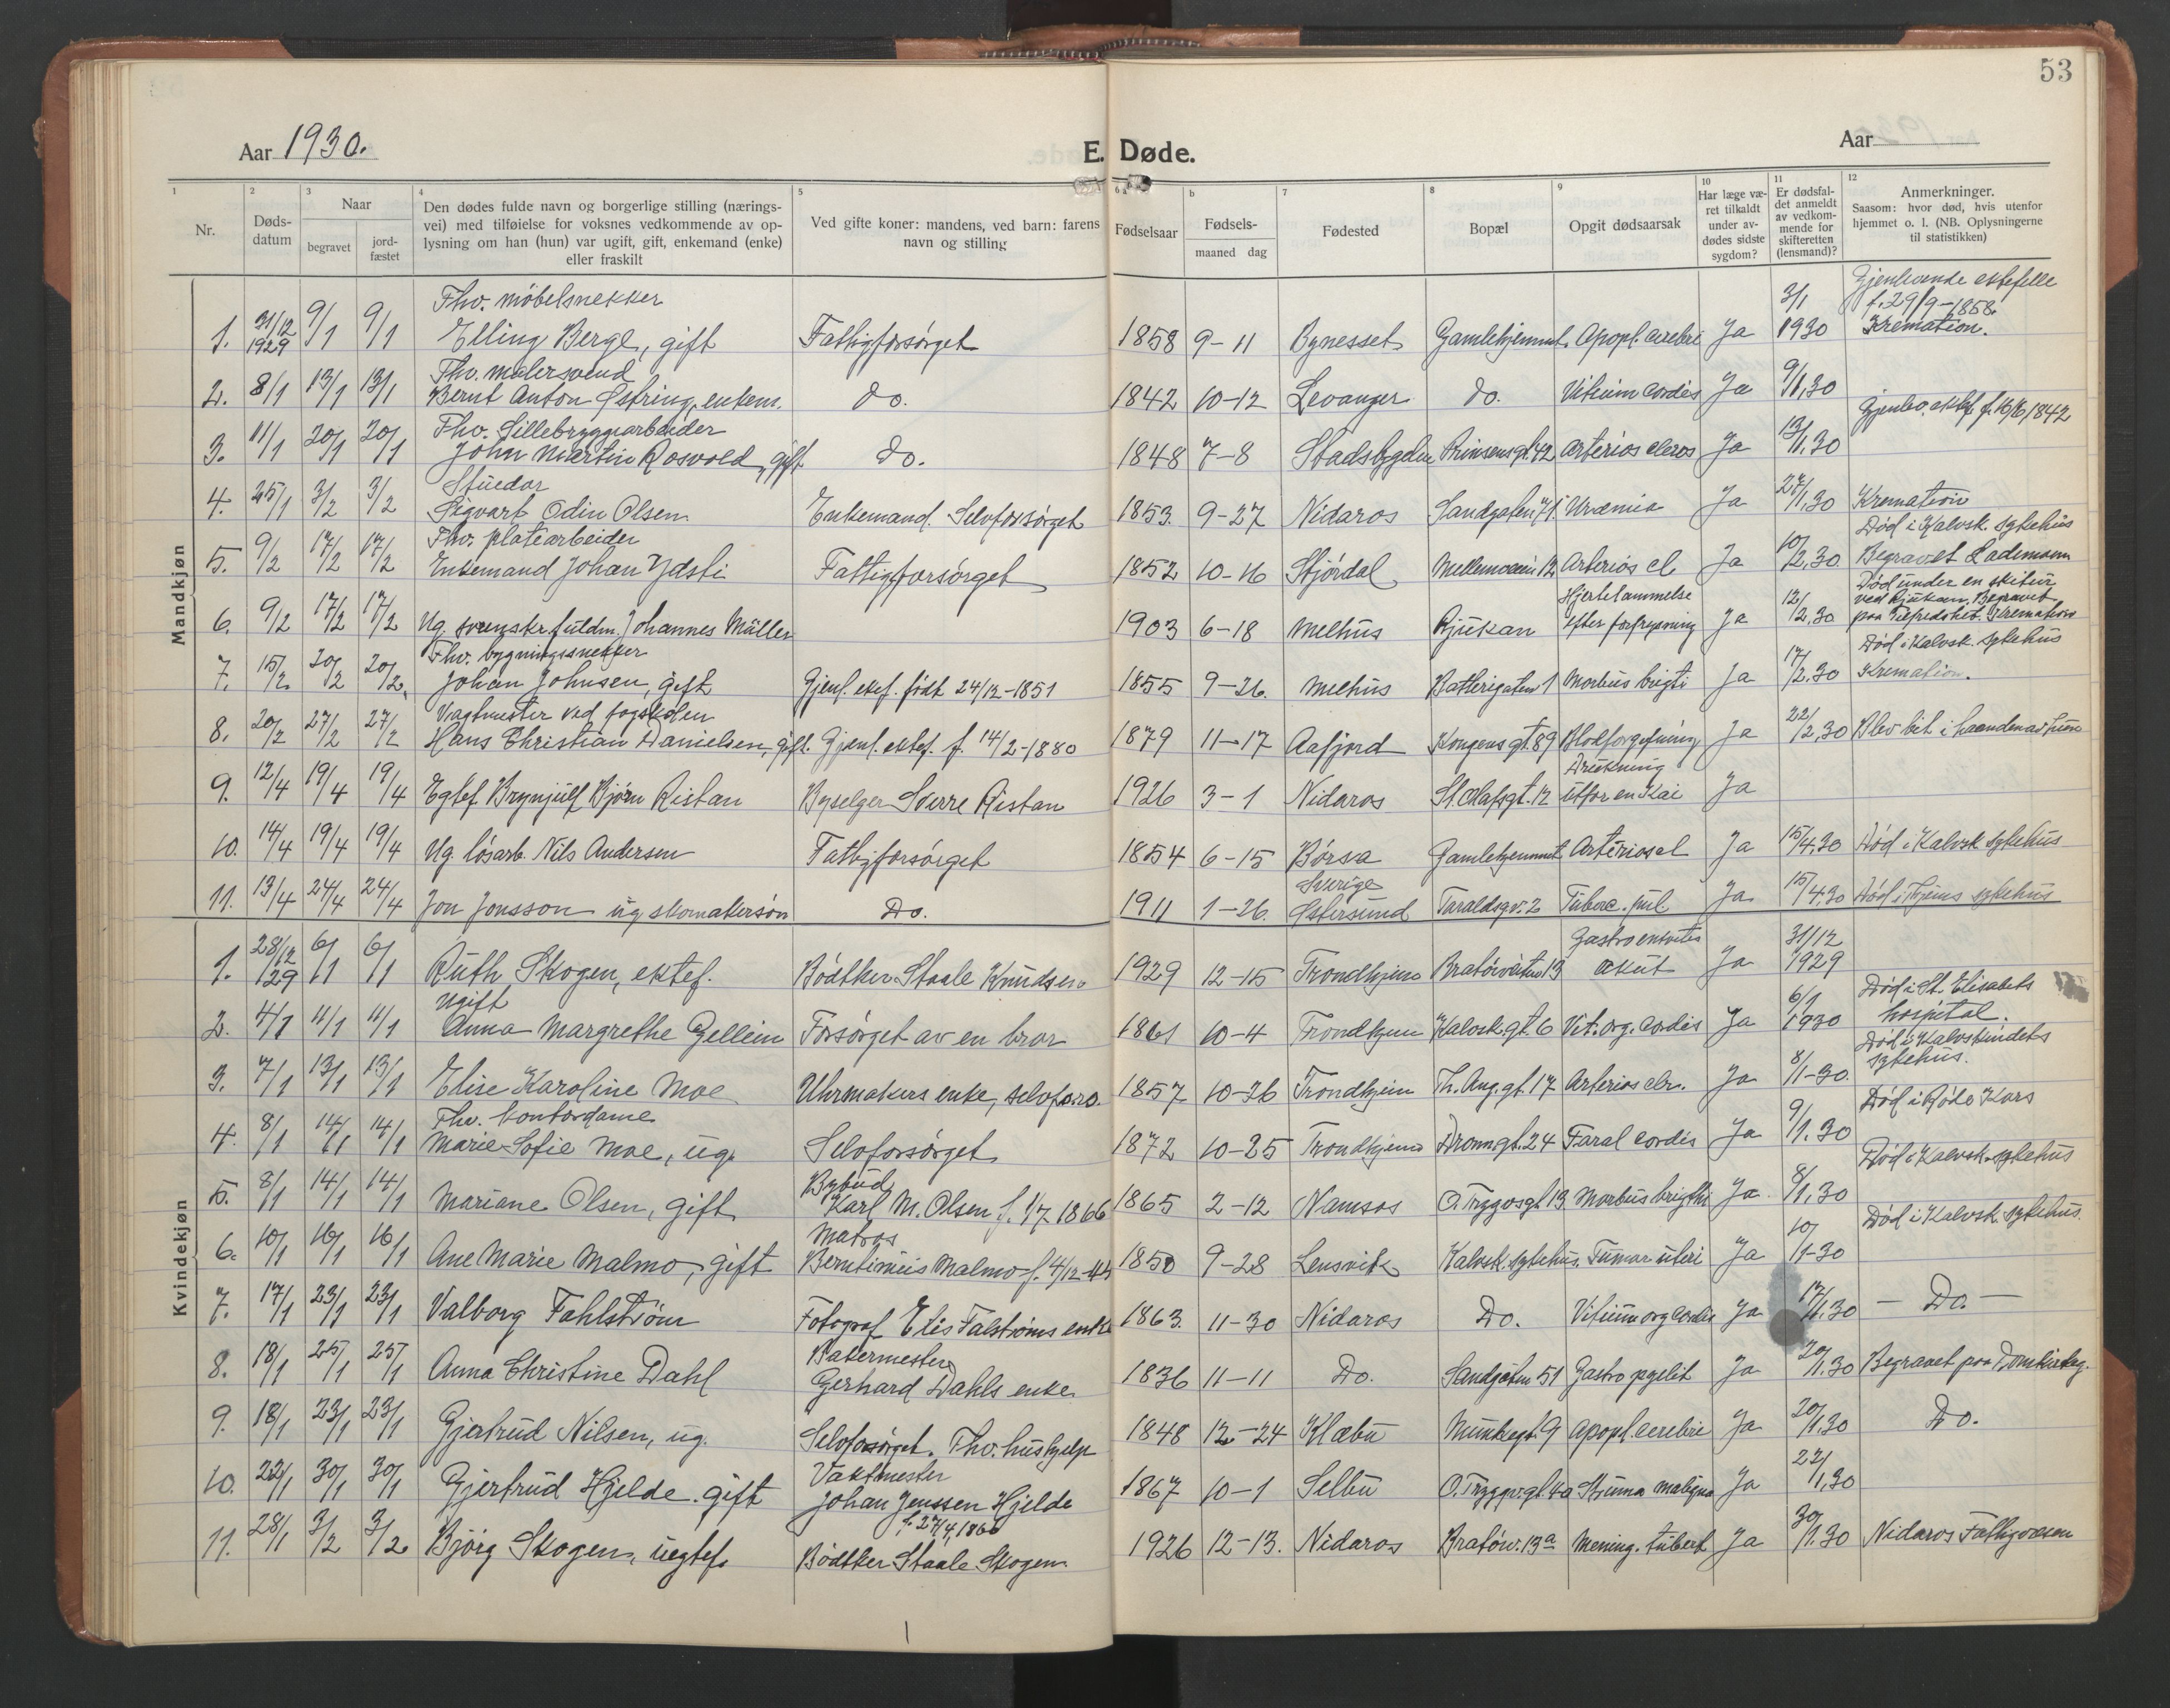 53
Aar 1930.
E. Døde.
Aar
1 2 3 4 5 6 a b 7 8 9 10 11 12
Nr.
Døds-
datum
Naar
begravet
jord-
fæstet
Den dødes fulde navn og borgerlige stilling (nærings-
vei) med tilføielse for voksnes vedkommende av op-
lysning om han (hun) var ugift, gift, enkemand (enke)
eller fraskilt
Ved gifte koner: mandens, ved barn: farens
navn og stilling
Fødselsaar
Fødsels-
maaned dag
Fødested
Bopæl
Opgit dødsaarsak
Har læge væ-
ret tilkaldt
under av-
dødes sidste
sygdom?
Er dødsfal-
det anmeldt
av vedkom-
mende for
skifteretten
(lensmand)?
Anmerkninger.
Saasom: hvor død, hvis utenfor
hjemmet o. l. (NB. Oplysningerne
til statistikken)
Mandkjøn
Fhv. møbelsnekker 3/1 Gjenlevende ektefelle
f. 29/9-1858.
1. 31/12 1929 9/1 9/1 Elling Berge, gift Fattigforsørget 1858 9-11 Bynesset Gamlehjemmet Apopl. cerebri Ja 1930 Kremation.
Fhv. malersvend
2. 8/1 13/1 13/1 Bernt Anton Østring, enkem. do. 1842 10-12 Levanger do. Vitium cordis Ja 9/1,30
Fhv. Sillebryggearbeider Gjenlev. ektef. f. 16/10 1842
3. 11/1 20/1 20/1 John Martin Rosvold, gift do. 1848 7-8 Stadsbygden Prinsensgt. 42 Arterioscleros Ja 13/1,30
Stuedor
4. 25/1 3/2 3/2 Sigvart Odin Olsen Enkemand. Selvforsørget 1853. 9-27 Nidaros Sandgaten 71 Uræmia Ja 27/1,30 Kremation
Fhv. platearbeider Død i Kalvsk. sykehus
5. 9/2 17/2 17/2 Enkemand Johan Ydsti Fattigforsørget 1852 10-16 Stjørdal Mellemveien 12 Arterioscl Ja 10/2,30 Begravet Lademoen
Hjertelammelse Død under en skitur
ved Rjukan. Begravet
6. 9/2 17/2 17/2 Ug. svenskr. fuldm. Johannes Müller 1903 6-18 Melhus Rjukan efter forfrysning Ja 12/2,30 paa Tilfredshet. Kremation
Fhv. bygningssnekker Død i Kalvsk. sykehus
7. 15/2 20/2 20/2 Johan Johnsen, gift Gjenl. ektef. født 24/12-1851 1855 9-26. Melhus Batterigaten 1 Morbus brigti Ja 17/2,30 Kremation.
Vagtmester ved fagskolen
8. 20/2 27/2 27/2 Hans Christian Danielsen, gift. Gjenl. ektef. f. 14/2-1880 1879 11-17 Aafjord Kongensgt. 89 Blodforgiftning Ja 22/2,30 Blev bit i haanden av
Drukning
9. 12/4 19/4 19/4 Egtef Brynjulf Bjørn Ristan Byselger Sverre Ristan 1926 3-1 Nidaros St. Olafsgt. 12 utfor en Kai Ja
10. 14/4 19/4 19/4 Ug. løsarb. Nils Andersen Fattigforsørget 1854 6-15 Børsa Gamlehjemmet Arterioscl Ja 15/4,30 Død i Kalvsk sykehus
Sverige
11. 13/4 24/4 24/4 Jon Jonsson ug skomakersøn Do. 1911 1-26. Østersund Taraldsgv. 2 Tuberc. pul Ja 15/4,30 Død i Hjems sykehus
Kvindekjøn
Gastroenterites 31/12
1. 28/12 29 6/1 6/1 Ruth Skogen, ektef. Bødtker Staale Knudsen 1929 12-15 Trondhjem Bratørveiten 13 akut Ja 1929
Ugift 6/1 Død i St. Elisabets
2. 4/1 11/1 11/1 Anna Margrethe Gellein Forsørget av en bror 1861 10-4 Trondhjem Kalvsk.gt. 6 Vit. org. cordis Ja 1930 hospital.
Død i Kalvskindets
3. 7/1 13/1 13/1 Elise Karoline Moe Uhrmakers enke, selvfors. 1857 10-26 Trondhjem Th. Ang.gt. 17 Arterioscler. Ja 8/1-30. sykehus.
Fhv. kontordame Død i Røde Kors
4. 8/1 14/1 14/1 Marie Sofie Moe, ug. Selvforsørget 1872 10-25 Trondhjem Dronn.gt. 24 Faral cordis Ja 9/1.30
Bybud Død i Kalvsk. sykehus
5. 8/1 14/1 14/1 Mariane Olsen, gift Karl M. Olsen f. 1/7 1866 1865 2-12 Namsos O. Trygvsgt. 13 Morbus brigthi Ja 8/1,30
Matros Død i Kalvsk. sykehus.
6. 10/1 16/1 16/1 Ane Marie Malmo, gift Berntinius Malmo f. 4/12-44 1850 9-28 Lensvik Kalvsk. sykehus. Tumor uteri Ja 10/1-30
7. 17/1 23/1 23/1 Valborg Fahlstrøm Fotograf Elis Falstrøms enke 1863. 11-30 Nidaros Do. Vitium org cordis Ja 17/1,30 — Do. —
Bakermester
8. 18/1 25/1 25/1 Anna Christine Dahl Gerhard Dahls enke 1836 11-11 Do. Sandgaten 51 Gastro pyelit Ja 20/1.30 Begravet paa Domkirkeg.
9. 18/1 23/1 23/1 Gjertrud Nilsen, ug. Selvforsørget. Fhv. hushjelp 1848 12-24 Klæbu Munkegt. 9 Apopl. cerebri Ja 20/1.30 Do.
Vaktmester
10. 22/1 30/1 30/1 Gjertrud Hjelde. gift Johan Jenssen Hjelde 1867 10-1 Selbu O. Tryggv.gt. 4a Struma maligna Ja 22/1,30
f. 27/4, 1866
11. 28/1 3/2 3/2 Bjørg Skogen, uegtef. Bødtker Staale Skogen 1926 12-13. Nidaros Bratørv. 13a Mening. tuberk Ja 30/1.30 Nidaros Fattigvæsen